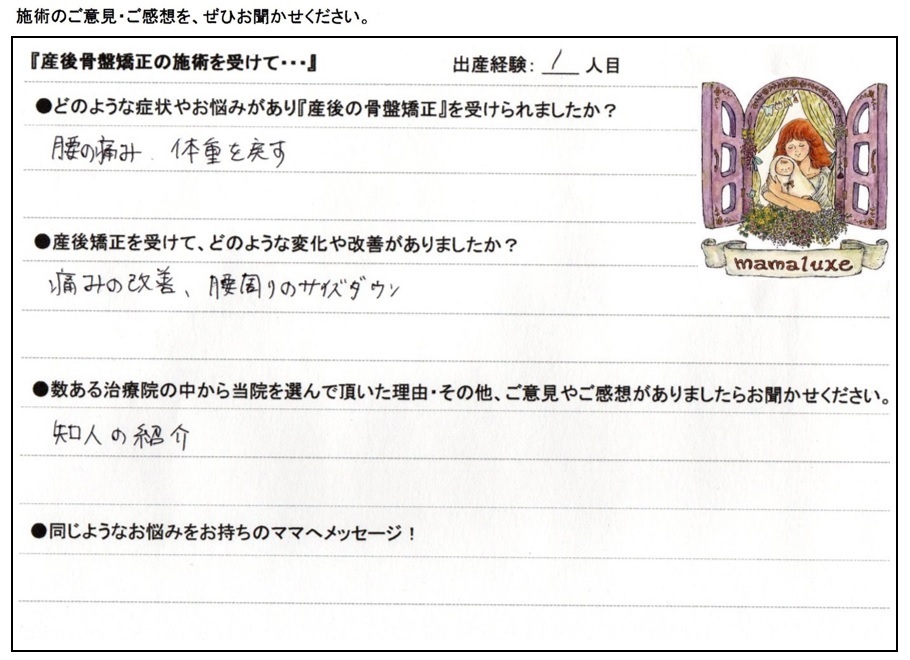 施術のご意見・ご感想を、ぜひお聞かせください。
『産後骨盤矯正の施術を受けて・・・』 出産経験： 1 人目
●どのような症状やお悩みがあり『産後の骨盤矯正』を受けられましたか？
腰の痛み、体重を戻す
●産後矯正を受けて、どのような変化や改善がありましたか？
痛みの改善、腰周りのサイズダウン
mamaluxe
●数ある治療院の中から当院を選んで頂いた理由・その他、ご意見やご感想がありましたらお聞かせください。
知人の紹介
●同じようなお悩みをお持ちのママへメッセージ！